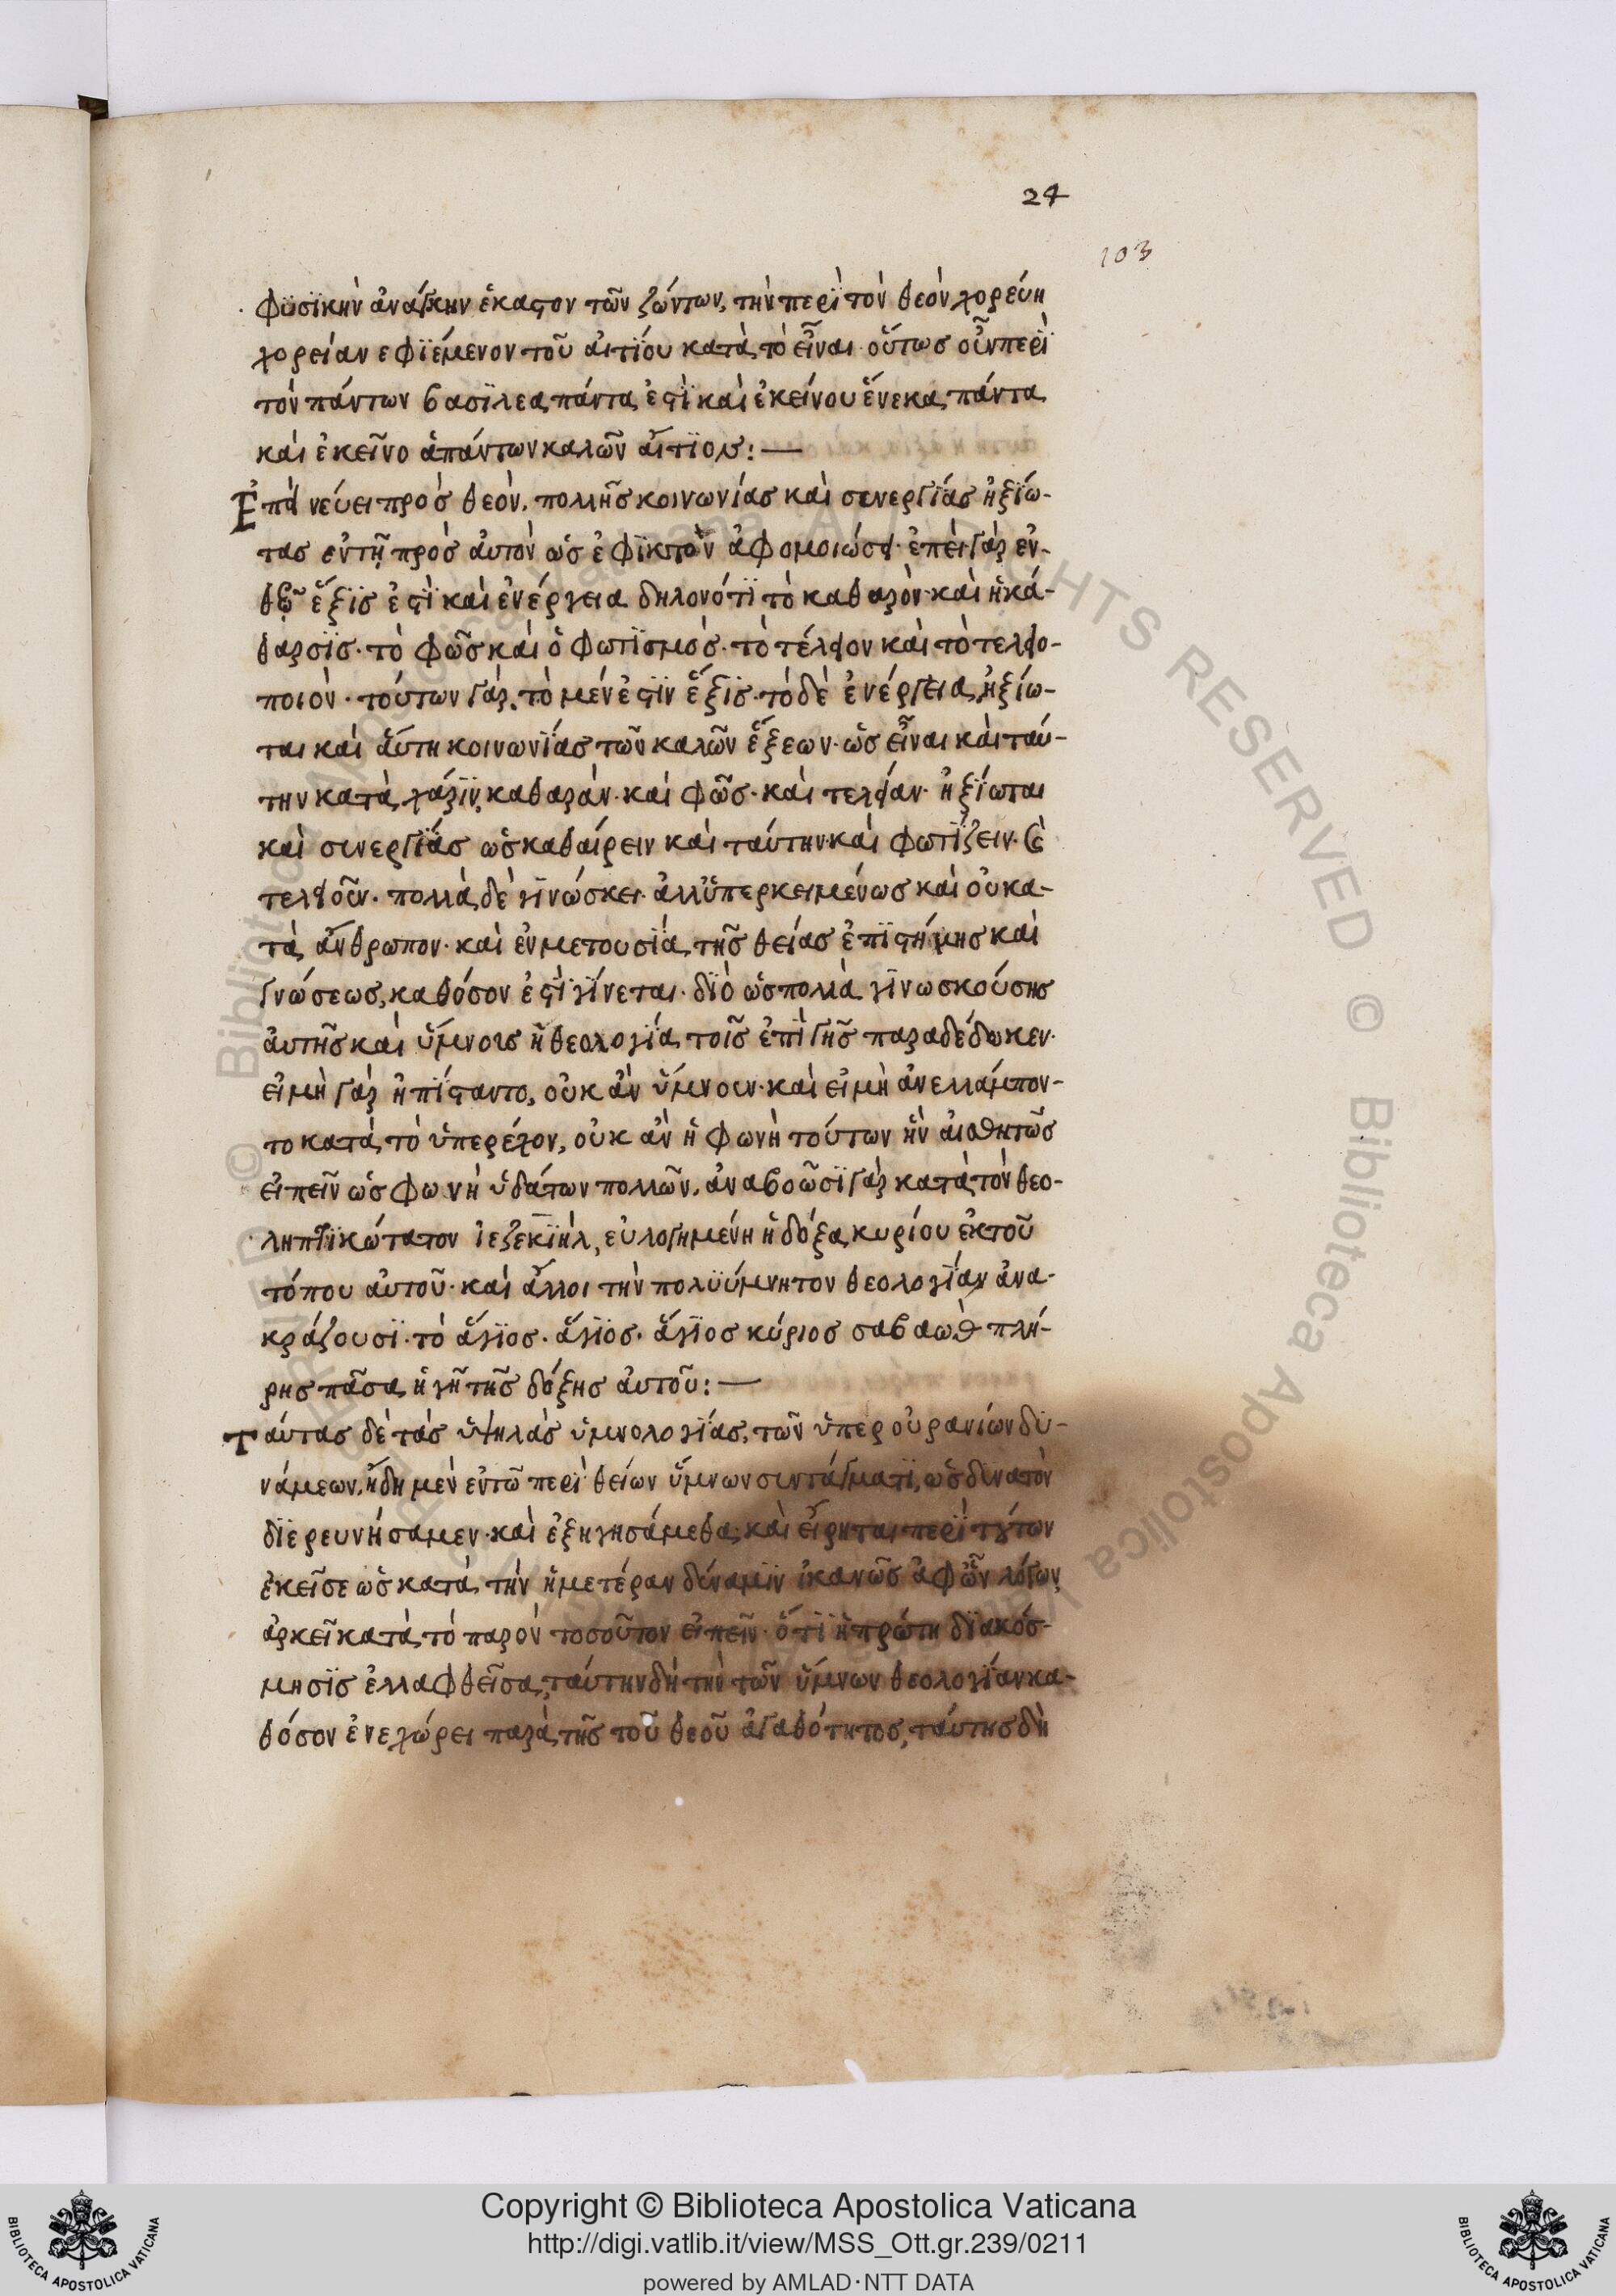 24
103
φϋσϊκὴν ἀνάγκην ἕκαστον τῶν ζώντων, τὴν περὶ τὸν θεὸν χορεύη
χορείαν εφϊέμενον τοῦ ἀιτΐου κατὰ τὸ εἶναι· οὕτωσ οὖν περὶ
τὸν πάντων βασϊλεα πάντα ἐστὶ καὶ ἐκείνου ἕνεκα πάντα
καὶ ἐκεῖνο ἁπάντων καλῶν αἴτϊον:—
Ἐπεὶ νεύει προσ θεὸν, πολλῆσ κοινωνίασ καὶ συνεργΐασ ἠξΐω-
ται ἐν τῆ προσ ἀυτὸν ὡσ ἐφϊκτὸν ἀφομοιώσει· ἐπεὶ γὰρ ἐν
θεῶ ἕξϊσ ἐστὶ καὶ ἐνέργεια δηλονότϊ τὸ καθαρὸν· καὶ ἡ κά-
θαρσϊσ· τὸ φῶσ καὶ ὁ φωτϊσμόσ· τὸ τέλειον καὶ τὸ τελειο-
ποιὸν· τούτων γὰρ, τὸ μέν ἐστϊν ἕξϊσ· τὸ δὲ ἐνέργεια, ἠξίω-
ται καὶ ἅυτη κοινωνΐασ τῶν καλῶν ἕξεων· ὡσ εἶναι καὶ ταύ-
την κατὰ χάρϊν, καθαρὰν· καὶ φῶσ· καὶ τελείαν· ἠξίωται
καὶ συνεργΐασ ὡσ καθαίρειν καὶ ταύτην· καὶ φωτΐζειν· καὶ
τελειοῦν· πολλὰ δὲ γϊνώσκει· ἀλλ' ὑπερκειμένωσ καὶ οὐ κα-
τὰ ἄνθρωπον· καὶ ἐν μετουσΐα τῆσ θείασ ἐπϊστήμησ καὶ
γνώσεωσ, καθόσον ἐστὶ γΐνεται· δϊὸ ὡσ πολλὰ γϊνωσκούσησ
ἀυτῆσ καὶ ὕμνουσ ἡ θεολογία τοῖσ ἐπὶ γῆσ παραδέδωκεν·
εἰ μὴ γὰρ ἠπΐσταντο, οὐκ ἂν ὕμνουν· καὶ εἰ μὴ ἀνελλάμπον-
το κατὰ τὸ ὑπερέχον, οὐκ ἂν ἡ φωνὴ τούτων ἦν ἀισθητῶσ
εἰπεῖν ὡσ φωνὴ ὑδάτων πολλῶν, ἀναβοῶσϊ γὰρ κατὰ τὸν θεο-
ληπτϊκώτατον ἰεζεκϊὴλ, εὐλογημένη ἡ δόξα κυρίου ἐκ τοῦ
τόπου ἀυτοῦ· καὶ ἄλλοι τὴν πολϋύμνητον θεολογΐαν ἀνα-
κράζουσϊ· τὸ ἅγϊοσ· ἅγϊοσ· ἅγϊοσ κύριοσ σαβαὼθ πλή-
ρησ πᾶσα ἡ γῆ τῆσ δόξησ ἀυτοῦ:—
Ταύτασ δὲ τὰσ ὑψηλὰσ ὑμνολογΐασ, τῶν ὑπερουρανίων δϋ-
νάμεων, ἤδη μὲν ἐν τῶ περὶ θείων ὕμνων συντάγματϊ, ὡσ δυνατὸν
δϊερευνήσαμεν· καὶ ἐξηγησάμεθα· καὶ εἴρηται περὶ τούτων
ἐκεῖσε ὡσ κατὰ τὴν ἡμετέραν δύναμϊν ἱκανῶσ ἀφ' ὧν λόγων
ἀρκεῖ κατὰ τὸ παρὸν τοσοῦτον εἰπεῖν· ὅτϊ ἡ πρώτη δϊακόσ-
μησϊσ ἐλλαφθεῖσα, ταύτην δὴ τὴν τῶν ὕμνων θεολογΐαν κα-
θόσον ἐνεχώρει παρὰ τῆσ τοῦ θεοῦ ἀγαθότητοσ, ταύτησ δὴ
Copyright © Biblioteca Apostolica Vaticana
http://digi.vatlib.it/view/MSS_Ott.gr.239/0211
powered by AMLAD·NTT DATA